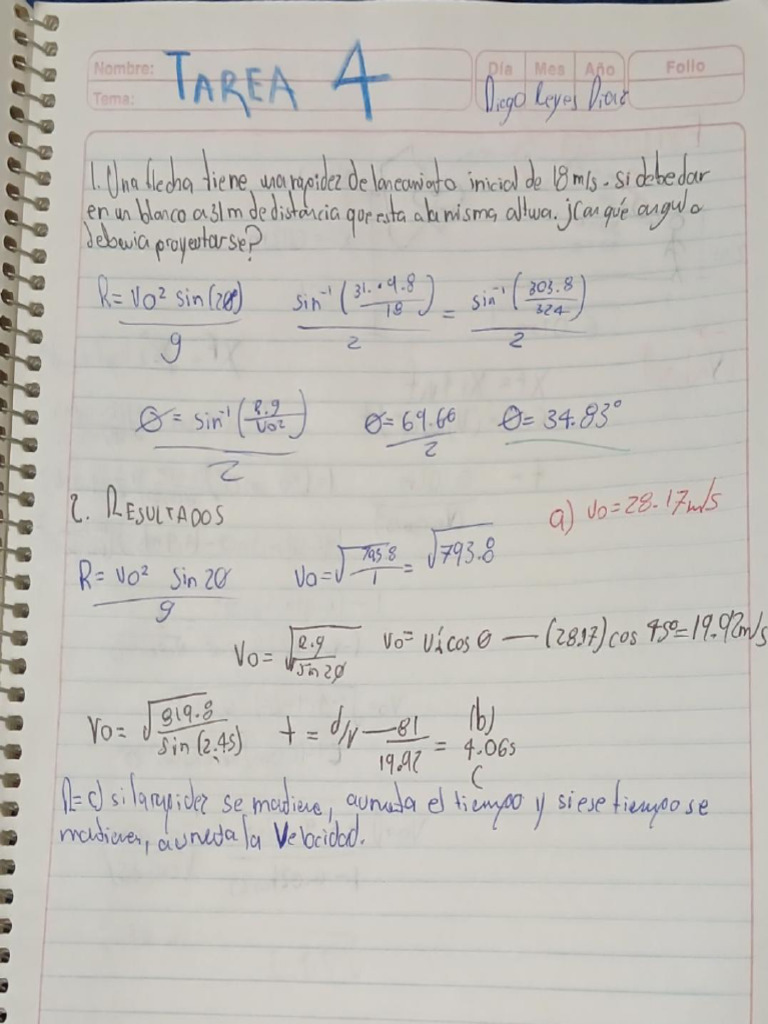 Nombre: TAREA 4 Día Mes Año Folio
Tema: Diego Reyes Diaz
1. Una flecha tiene una rapidez de lanzamiento inicial de 18 m/s. si debe dar
en un blanco a 31m de distancia que esta a la misma altura. ¿Con qué angulo
deberia proyectarse?
R = Vo² sin(2θ) / g sin⁻¹(31 · 9.8 / 18) / 2 = sin⁻¹(303.8 / 324) / 2
θ = sin⁻¹(R.g / Vo²) / 2 θ = 69.66 / 2 θ = 34.83°
2. RESULTADOS a) Vo = 28.17 m/s
R = Vo² Sin 2θ / g Vo = √(793.8 / 1) = √793.8
Vo = √(R.g / sin 2θ) Vo = Vi cos θ — (28.17) cos 45° = 19.92 m/s
Vo = √(819.8 / sin(2.45)) t = d/v — 81 / 19.92 = 4.06s (b)
R= c) si la rapidez se
el tiempo y si ese tiempo se
la Velocidad.